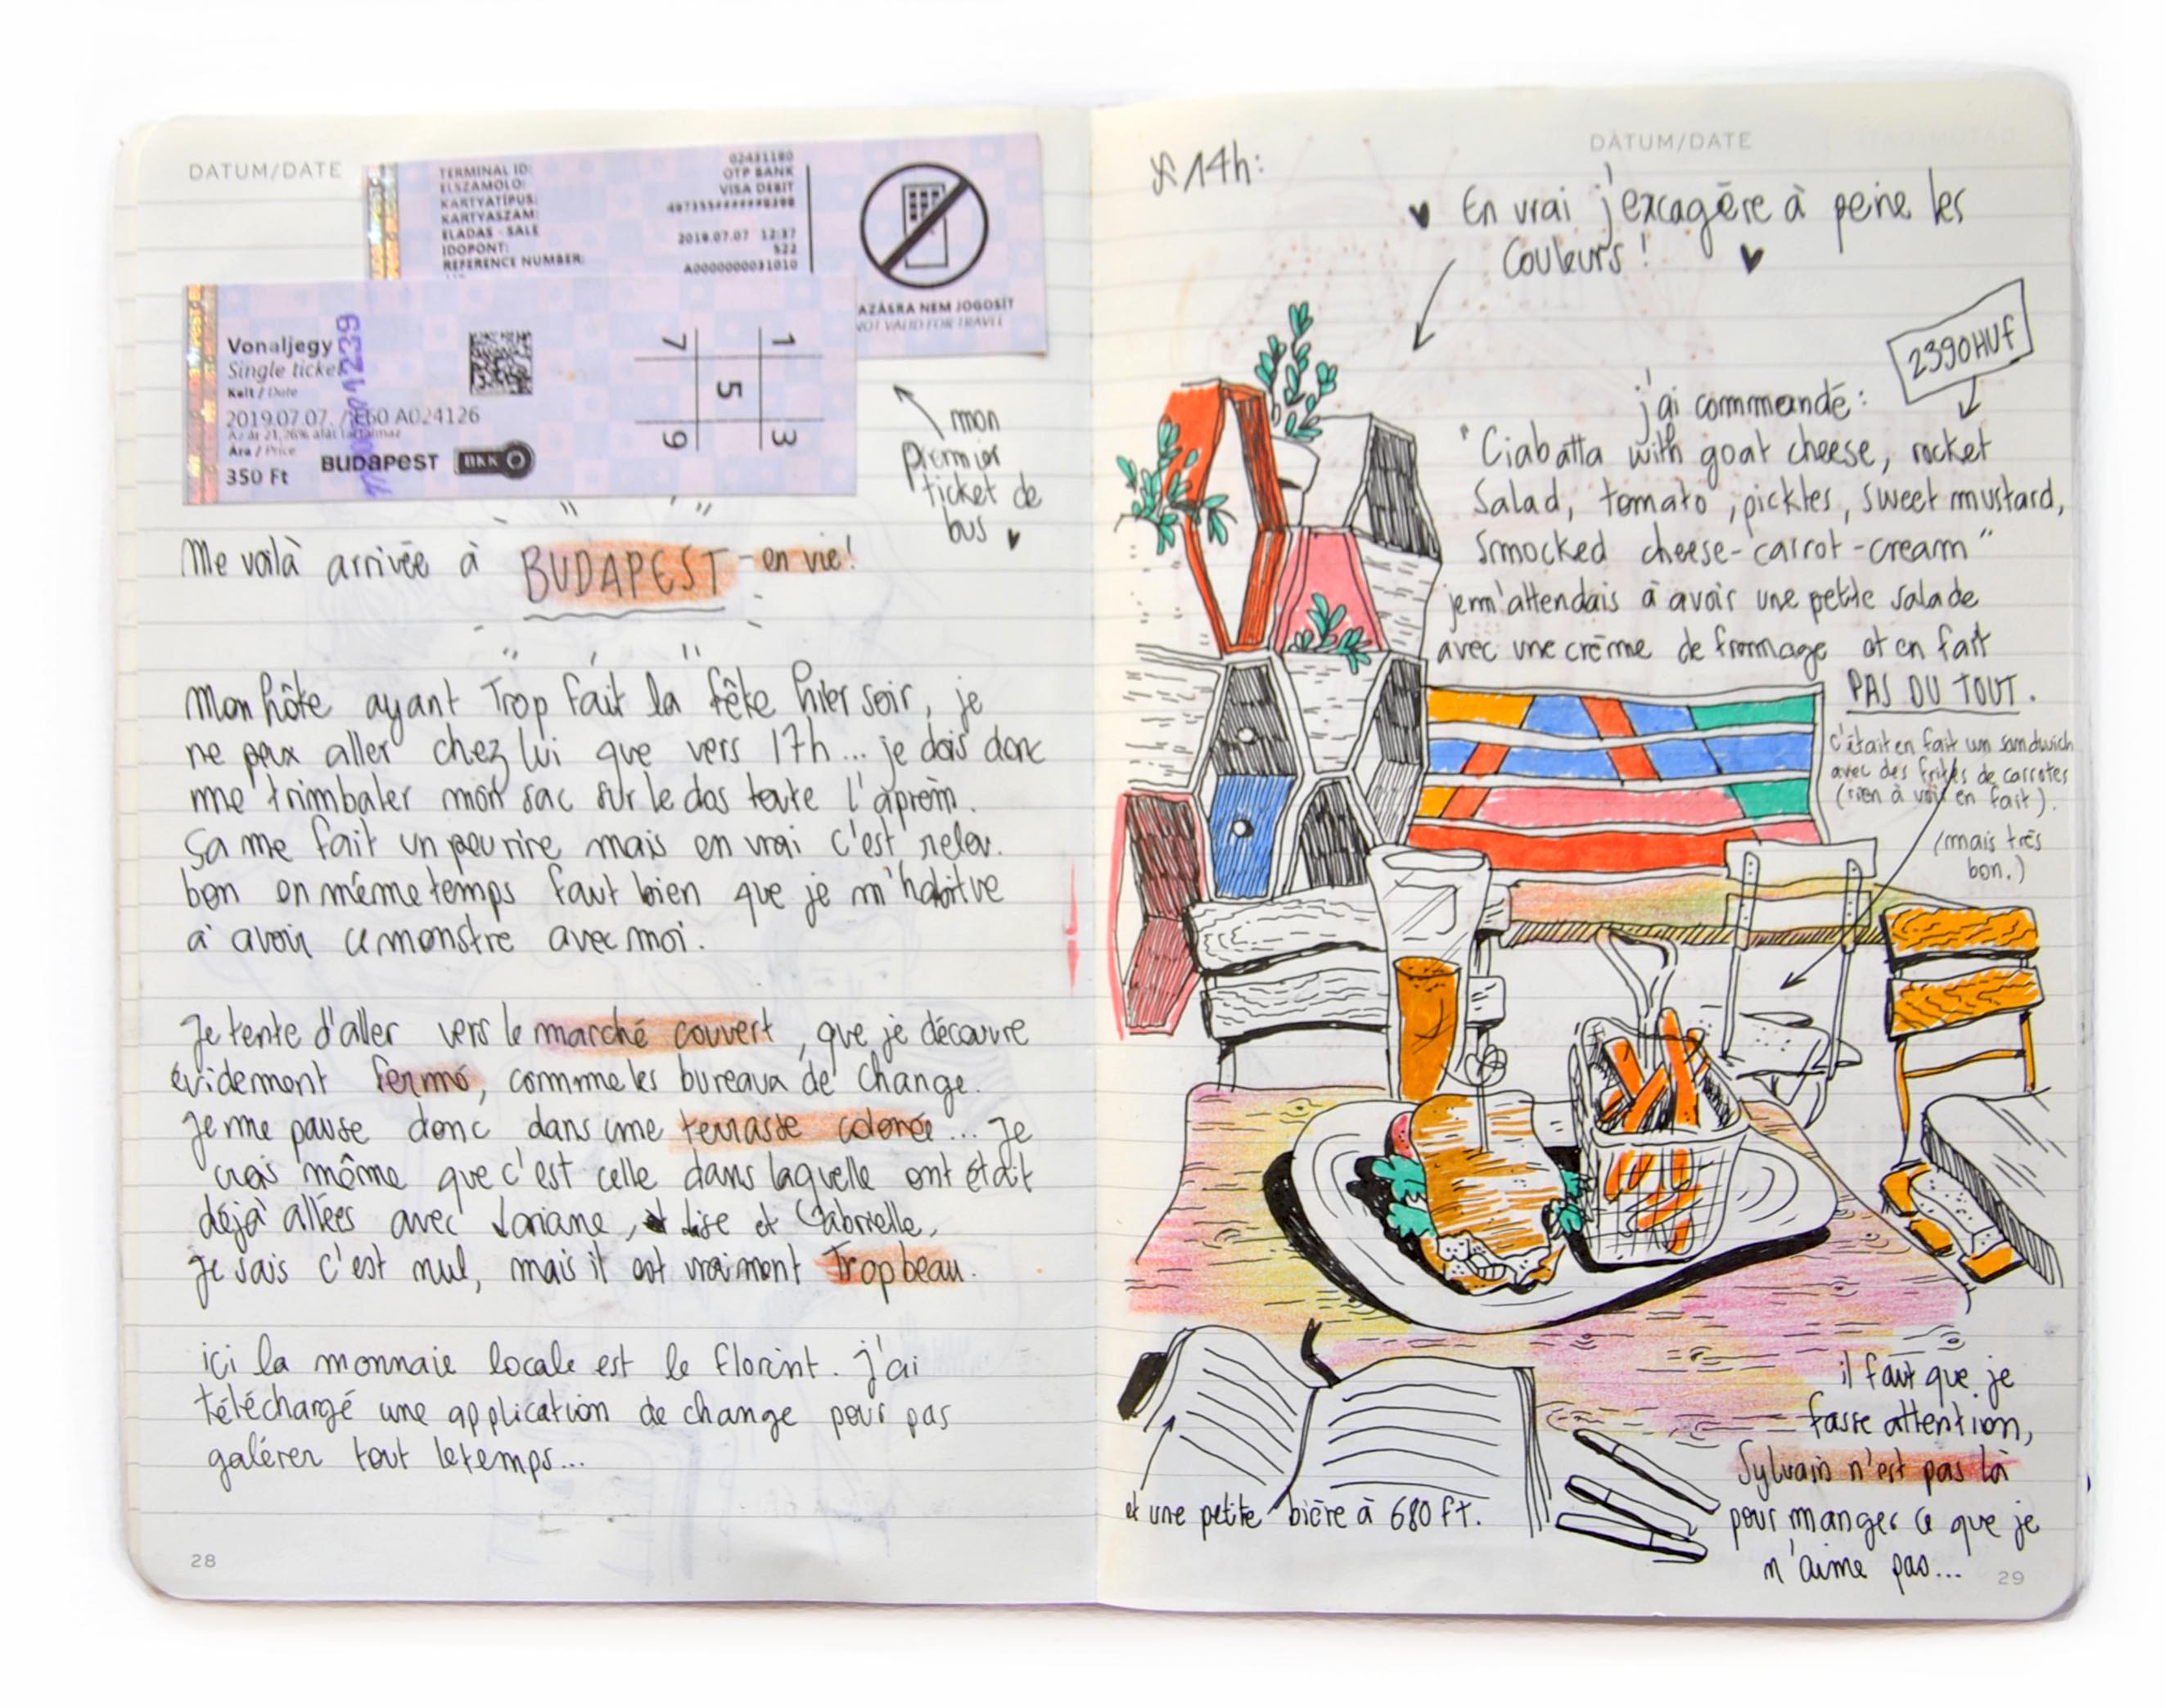 DATUM/DATE
TERMINAL ID: 02431180
ELSZAMOLO: OTP BANK
KARTYATÍPUS: VISA DEBIT
KARTYASZAM:
ELADAS - SALE
IDOPONT: 2019.07.07 12:37
REFERENCE NUMBER: 522
A0000000031010
AZÁSRA NEM JOGOSÍT
NOT VALID FOR TRAVEL
Vonaljegy
Single ticket
Kelt / Date
2019.07.07. A024126
Ára / Price
350 Ft
BUDAPEST BKK
1 7
5
3 9
mon
premier
ticket de
bus
Me voilà arrivée à BUDAPEST - en vie!
Mon hôte ayant Trop fait la fête hier soir, je
ne peux aller chez lui que vers 17h... je dois donc
me trimbaler mon sac sur le dos toute l'aprèm.
Sa me fait un peu rire mais en vrai c'est relou.
bon en même temps faut bien que je m'habitue
à avoir ce monstre avec moi.
Je tente d'aller vers le marché couvert, que je découvre
évidemment fermé, comme les bureaux de change.
Je me pause donc dans une terrasse colorée... Je
crois même que c'est celle dans laquelle ont était
déjà allées avec Loriane, Lise et Gabrielle.
Je sais c'est nul, mais il est vraiment Trop beau.
ici la monnaie locale est le florint. j'ai
téléchargé une application de change pour pas
galérer tout le temps...
28
DÁTUM/DATE
14h:
En vrai j'excagère à peine les
Couleurs!
2390HUf
j'ai commandé:
"Ciabatta with goat cheese, rocket
Salad, tomato, pickles, sweet mustard,
Smocked cheese-carrot-cream"
je m'attendais à avoir une petite salade
avec une crème de fromage et en fait
PAS DU TOUT.
c'était en fait un sandwich
avec des frites de carrotes
(rien à voir en fait).
(mais très
bon.)
il faut que je
fasse attention,
Sylvain n'est pas là
pour manger ce que je
n'aime pas...
et une petite bière à 680 ft.
29